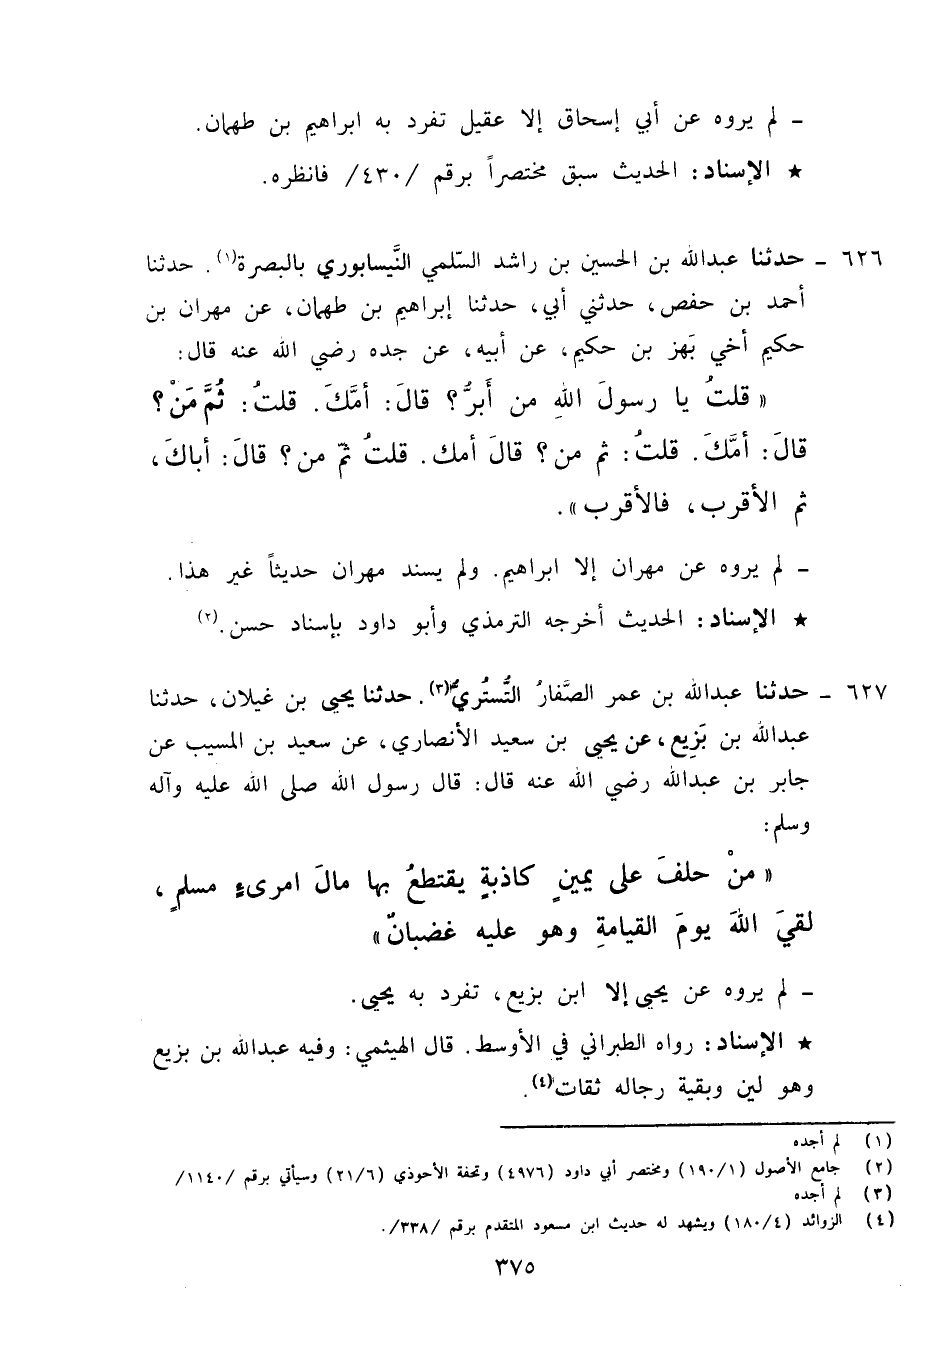 – لم يروه عن أبي إسحاق إلا عقيل تفرد به ابراهيم بن طهمان.
★ الإسناد: الحديث سبق مختصراً برقم /٤٣٠/ فانظره.
٦٢٦ – حدثنا عبدالله بن الحسين بن راشد السّلمي النَّيسابوري بالبصرة(١). حدثنا
أحمد بن حفص، حدثني أبي، حدثنا إبراهيم بن طهمان، عن مهران بن
حكيم أخي بَهز بن حكيم، عن أبيه، عن جده رضي الله عنه قال:
« قلتُ يا رسولَ اللهِ من أَبرُّ؟ قالَ: أمَّكَ. قلتُ: ثُمَّ مَنْ؟
قالَ: أمَّكَ. قلتُ: ثم من؟ قالَ أمك. قلتُ ثمّ من؟ قالَ: أباكَ،
ثم الأقرب، فالأقرب».
– لم يروه عن مهران إلا ابراهيم. ولم يسند مهران حديثاً غير هذا.
★ الإسناد: الحديث أخرجه الترمذي وأبو داود بإسناد حسن.(٢)
٦٢٧ – حدثنا عبدالله بن عمر الصَّفارُ التُّستُريُّ(٣). حدثنا يحيى بن غيلان، حدثنا
عبدالله بن بَزِيع، عن يحيى بن سعيد الأنصاري، عن سعيد بن المسيب عن
جابر بن عبدالله رضي الله عنه قال: قال رسول الله صلى الله عليه وآله
وسلم:
« منْ حلفَ على يمينٍ كاذبةٍ يقتطعُ بها مالَ امرىءٍ مسلمٍ،
لقيَ اللهَ يومَ القيامةِ وهو عليه غضبانٌ»
– لم يروه عن يحيى إلا ابن بزيع، تفرد به يحيى.
★ الإسناد: رواه الطبراني في الأوسط. قال الهيثمي: وفيه عبدالله بن بزيع
وهو لين وبقية رجاله ثقات(٤).
(١) لم أجده
(٢) جامع الأصول (١٩٠/١) ومختصر أبي داود (٤٩٧٦) وتحفة الأحوذي (٢١/٦) وسيأتي برقم /١١٤٠/
(٣) لم أجده
(٤) الزوائد (١٨٠/٤) ويشهد له حديث ابن مسعود المتقدم برقم /٣٣٨/.
٣٧٥